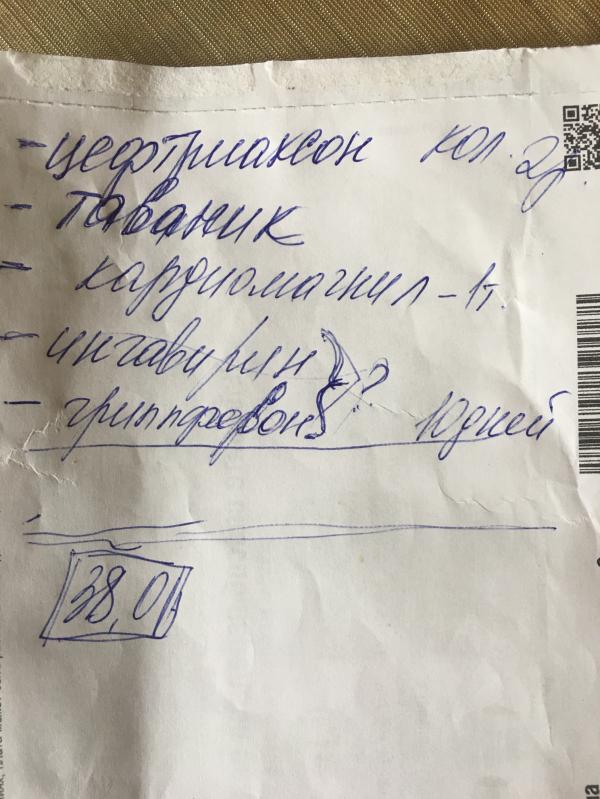 - цефтриаксон кол. 2г.
- таваник
- кардиомагнил - 1т.
- ингавирин } ?
- гриппферон } 10 дней
38,0